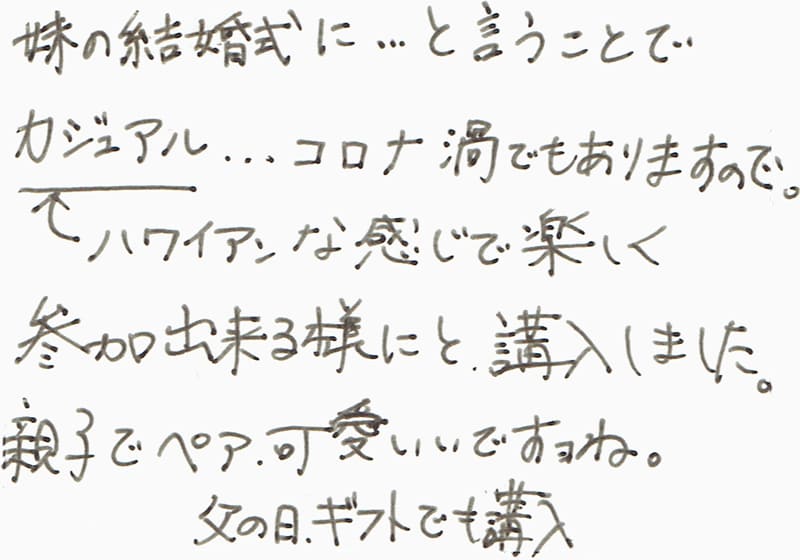 妹の結婚式に…と言うことで
カジュアル…コロナ渦でもありますので。
ハワイアンな感じで楽しく
参加出来る様にと、講入しました。
親子でペア、可愛いいですヨね。
父の日、ギフトでも講入